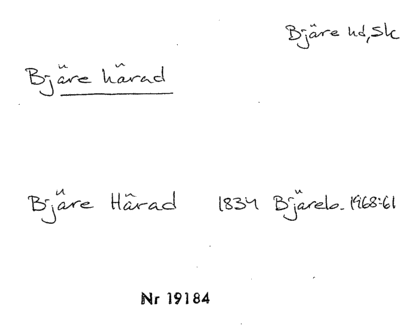 Bjäre hd, Sk
Bjäre härad
Bjäre Härad 1834 Bjäreb. 1968:61
Nr 19184